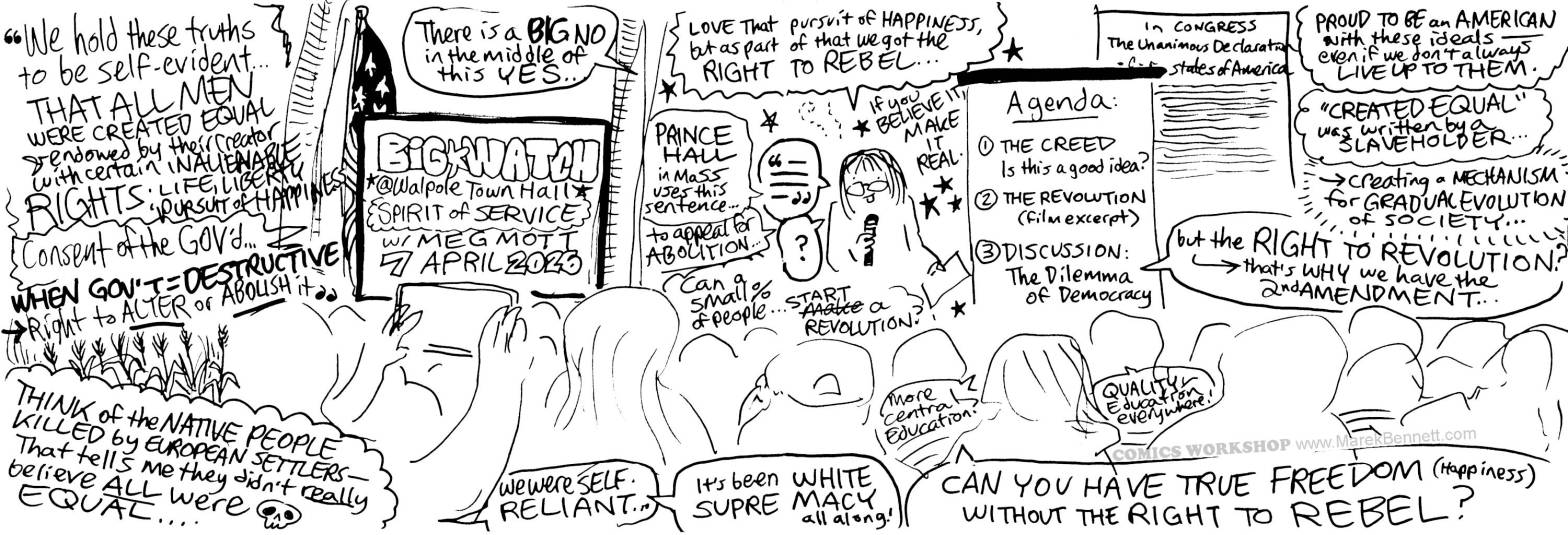 “We hold these truths
to be self-evident...
THAT ALL MEN
WERE CREATED EQUAL
→ endowed by their Creator
with certain INALIENABLE
RIGHTS: LIFE, LIBERTY
PURSUIT of HAPPINESS
Consent of the GOV'd...
WHEN GOV'T = DESTRUCTIVE
→ Right to ALTER or ABOLISH it„
THINK of the NATIVE PEOPLE
KILLED by EUROPEAN SETTLERS—
That tells me they didn't really
believe ALL were
EQUAL....
There is a BIG NO
in the middle of
this YES...
BIG KWATCH
★@Walpole Town Hall★
SPIRIT of SERVICE
w/ MEG MOTT
7 APRIL 2023
LOVE That pursuit of HAPPINESS,
but as part of that we got the
RIGHT TO REBEL...
PRINCE
HALL
in MASS
uses this
sentence...
to appeal for
ABOLITION...
“ „
?
If you
BELIEVE IT,
MAKE
IT
REAL.
Can a
small %
of people... START
Make a
REVOLUTION?
Agenda:
① THE CREED
Is this a good idea?
② THE REVOLUTION
(film excerpt)
③ DISCUSSION:
The Dilemma
of Democracy
In CONGRESS
The Unanimous Declaration
states of America
PROUD TO BE an AMERICAN
with these ideals —
even if we don't always
LIVE UP TO THEM.
“CREATED EQUAL”
was written by a
SLAVEHOLDER...
→ creating a MECHANISM
for GRADUAL EVOLUTION
of SOCIETY...
but the RIGHT TO REVOLUTION?
→ that's WHY we have the
2nd AMENDMENT...
More
central
Education!
QUALITY
Education
everywhere!
we were SELF-
RELIANT...
It's been WHITE
SUPREMACY
all along!
COMICS WORKSHOP www.MarekBennett.com
CAN YOU HAVE TRUE FREEDOM (Happiness)
WITHOUT THE RIGHT TO REBEL?